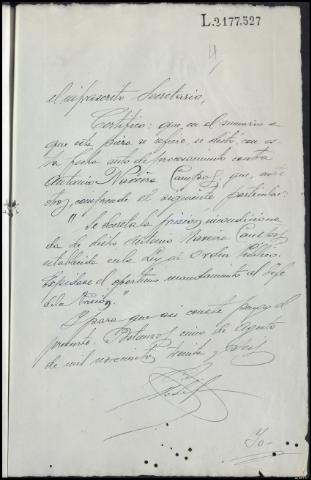 L.2177,527
4
El infrascrito Secretario,
Certifico: que en el sumario a
que esta pieza se refiere, se dictó con es
ta fecha auto de procesamiento contra
Antonio Naveira que, entre
otros comprende el siguiente particular:
" Se decreta la prisión incondiciona
da de dicho Antonio Naveira
establecida en la Ley de Orden Público.
Expídase el oportuno mandamiento al Jefe
de la Prisión."
Y para que así conste pongo el
presente. Betanzos, cinco de Agosto
de mil novecientos treinta y